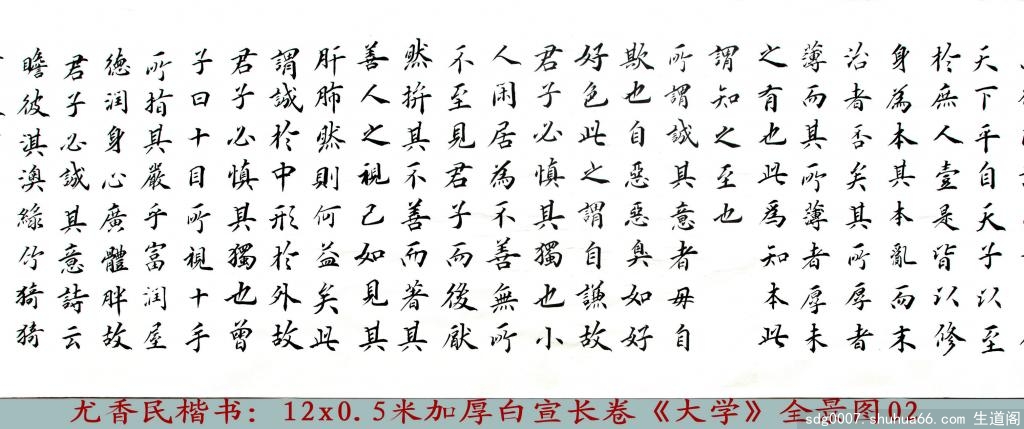 天下平自天子以至
於庶人壹是皆以修
身為本其本亂而末
治者否矣其所厚者
薄而其所薄者厚未
之有也此為知本此
謂知之至也
所謂誠其意者毋自
欺也自惡惡臭如好
好色此之謂自謙故
君子必慎其獨也小
人闲居為不善無所
不至見君子而後厭
然拚其不善而著其
善人之視己如見其
肝肺然則何益矣此
謂誠於中形於外故
君子必慎其獨也曾
子曰十目所視十手
所指其嚴乎富润屋
德润身心廣體胖故
君子必誠其意詩云
瞻彼淇澳綠竹猗猗
尤香民楷书：12x0.5米加厚白宣长卷《大学》全景图02
sdg0007.shuhua66.com 生道阁